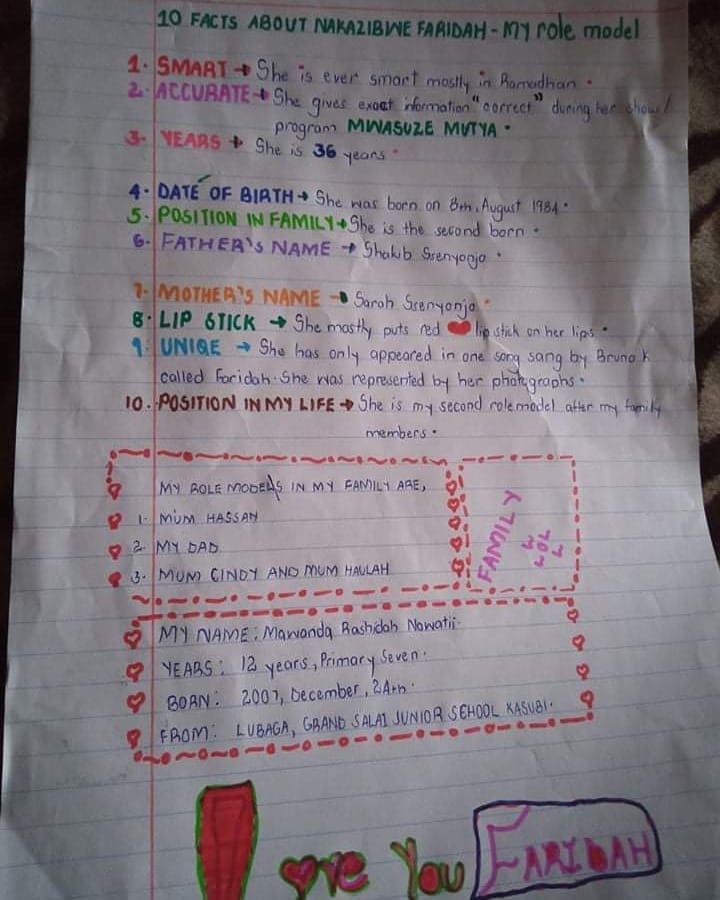 10 FACTS ABOUT NAKAZIBWE FARIDAH - My role model
1. SMART → She is ever smart mostly in Ramadhan.
2. ACCURATE → She gives exact information "correct" during her show/
program MWASUZE MUTYA.
3. YEARS → She is 36 years.
4. DATE OF BIRTH → She was born on 8th, August 1984.
5. POSITION IN FAMILY → She is the second born.
6. FATHER'S NAME → Shakib Ssenyonjo.
7. MOTHER'S NAME → Sarah Ssenyonjo.
8. LIP STICK → She mostly puts red ❤ lip stick on her lips.
9. UNIQE → She has only appeared in one song sang by Bruno K
called Faridah. She was represented by her photographs.
10. POSITION IN MY LIFE → She is my second role model after my family
members.
MY ROLE MODELS IN MY FAMILY ARE,
1. MUM HASSAN
2. MY DAD
3. MUM CINDY AND MUM HAULAH
FAMILY
MY NAME: Mawanda Rashidah Nawatii.
YEARS: 12 years, Primary Seven.
BORN: 2007, December, 24th.
FROM: LUBAGA, GRAND SALAI JUNIOR SCHOOL KASUBI.
I Love You FARIDAH